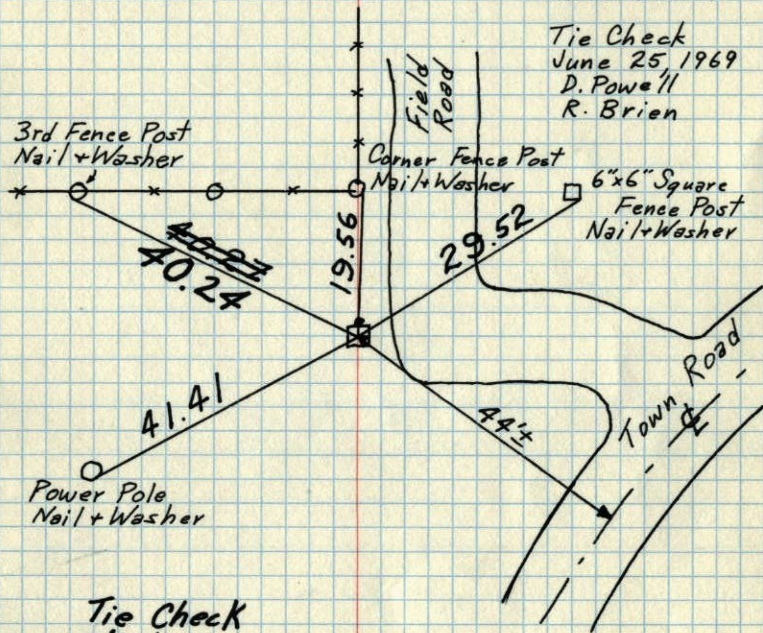 Tie Check
June 25, 1969
D. Powell
R. Brien
Field
Road
3rd Fence Post
Nail + Washer
Corner Fence Post
Nail + Washer
6"x6" Square
Fence Post
Nail + Washer
40.27
40.24
19.56
29.52
41.41
44'±
Town Road
℄
Power Pole
Nail + Washer
Tie Check